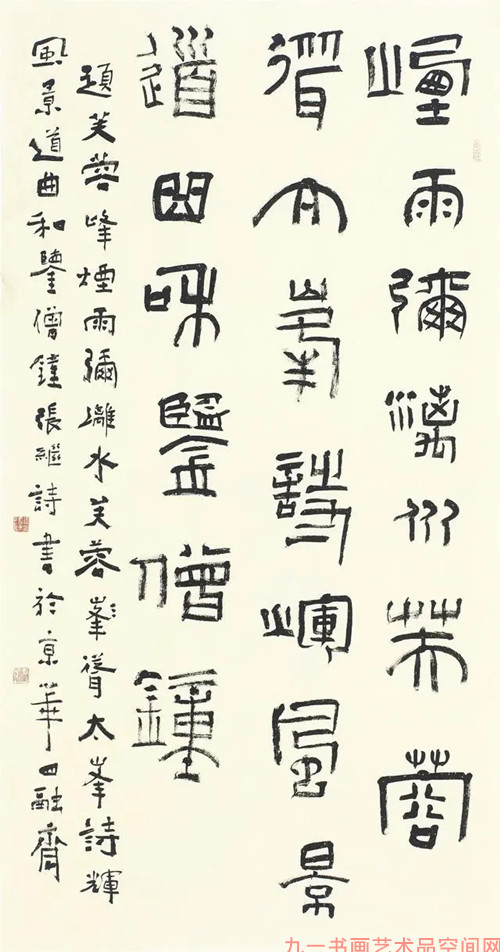 煙雨彌漓水芙蓉
太峯詩輝風景
道曲和鑒僧鐘
題芙蓉峰煙雨彌灕水芙蓉峯太峯詩輝
風景道曲和鑒僧鐘張繼詩書於京華四融齋
九一书画艺术品空间网